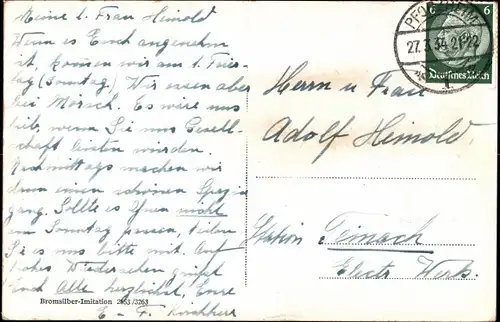 Meine l. Frau Heimold
Wenn es Euch angenehm
ist, kommen wir am 1. Feier-
tag (Sonntag). Wir essen aber
bei Mörsch. Es wäre uns
lieb, wenn Sie uns Gesell-
schaft leisten würden.
Nachmittags machen wir
dann einen schönen Spazier
gang. Sollte es Ihnen nicht
am Sonntag passen, teilen
Sie es uns bitte mit. Auf
frohes Wiedersehen grüßt
Euch Alle herzlichst, Eure
E. F. Kirchherr
Bromsilber-Imitation 2853/3263
PFORZHEIM
27.3.34.21-22
6
Deutsches Reich
Herrn u. Frau
Adolf Heimold.
Station Teinach
Electr. Werk.